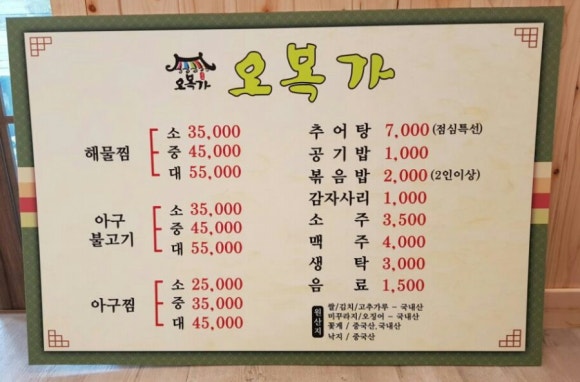 오복가
오복가
해물찜
소 35,000
중 45,000
대 55,000
아구
불고기
소 35,000
중 45,000
대 55,000
아구찜
소 25,000
중 35,000
대 45,000
추어탕 7,000 (점심특선)
공기밥 1,000
볶음밥 2,000 (2인이상)
감자사리 1,000
소주 3,500
맥주 4,000
생탁 3,000
음료 1,500
원산지
쌀/김치/고추가루 - 국내산
미꾸라지/오징어 - 국내산
꽃게 / 중국산,국내산
낙지 / 중국산